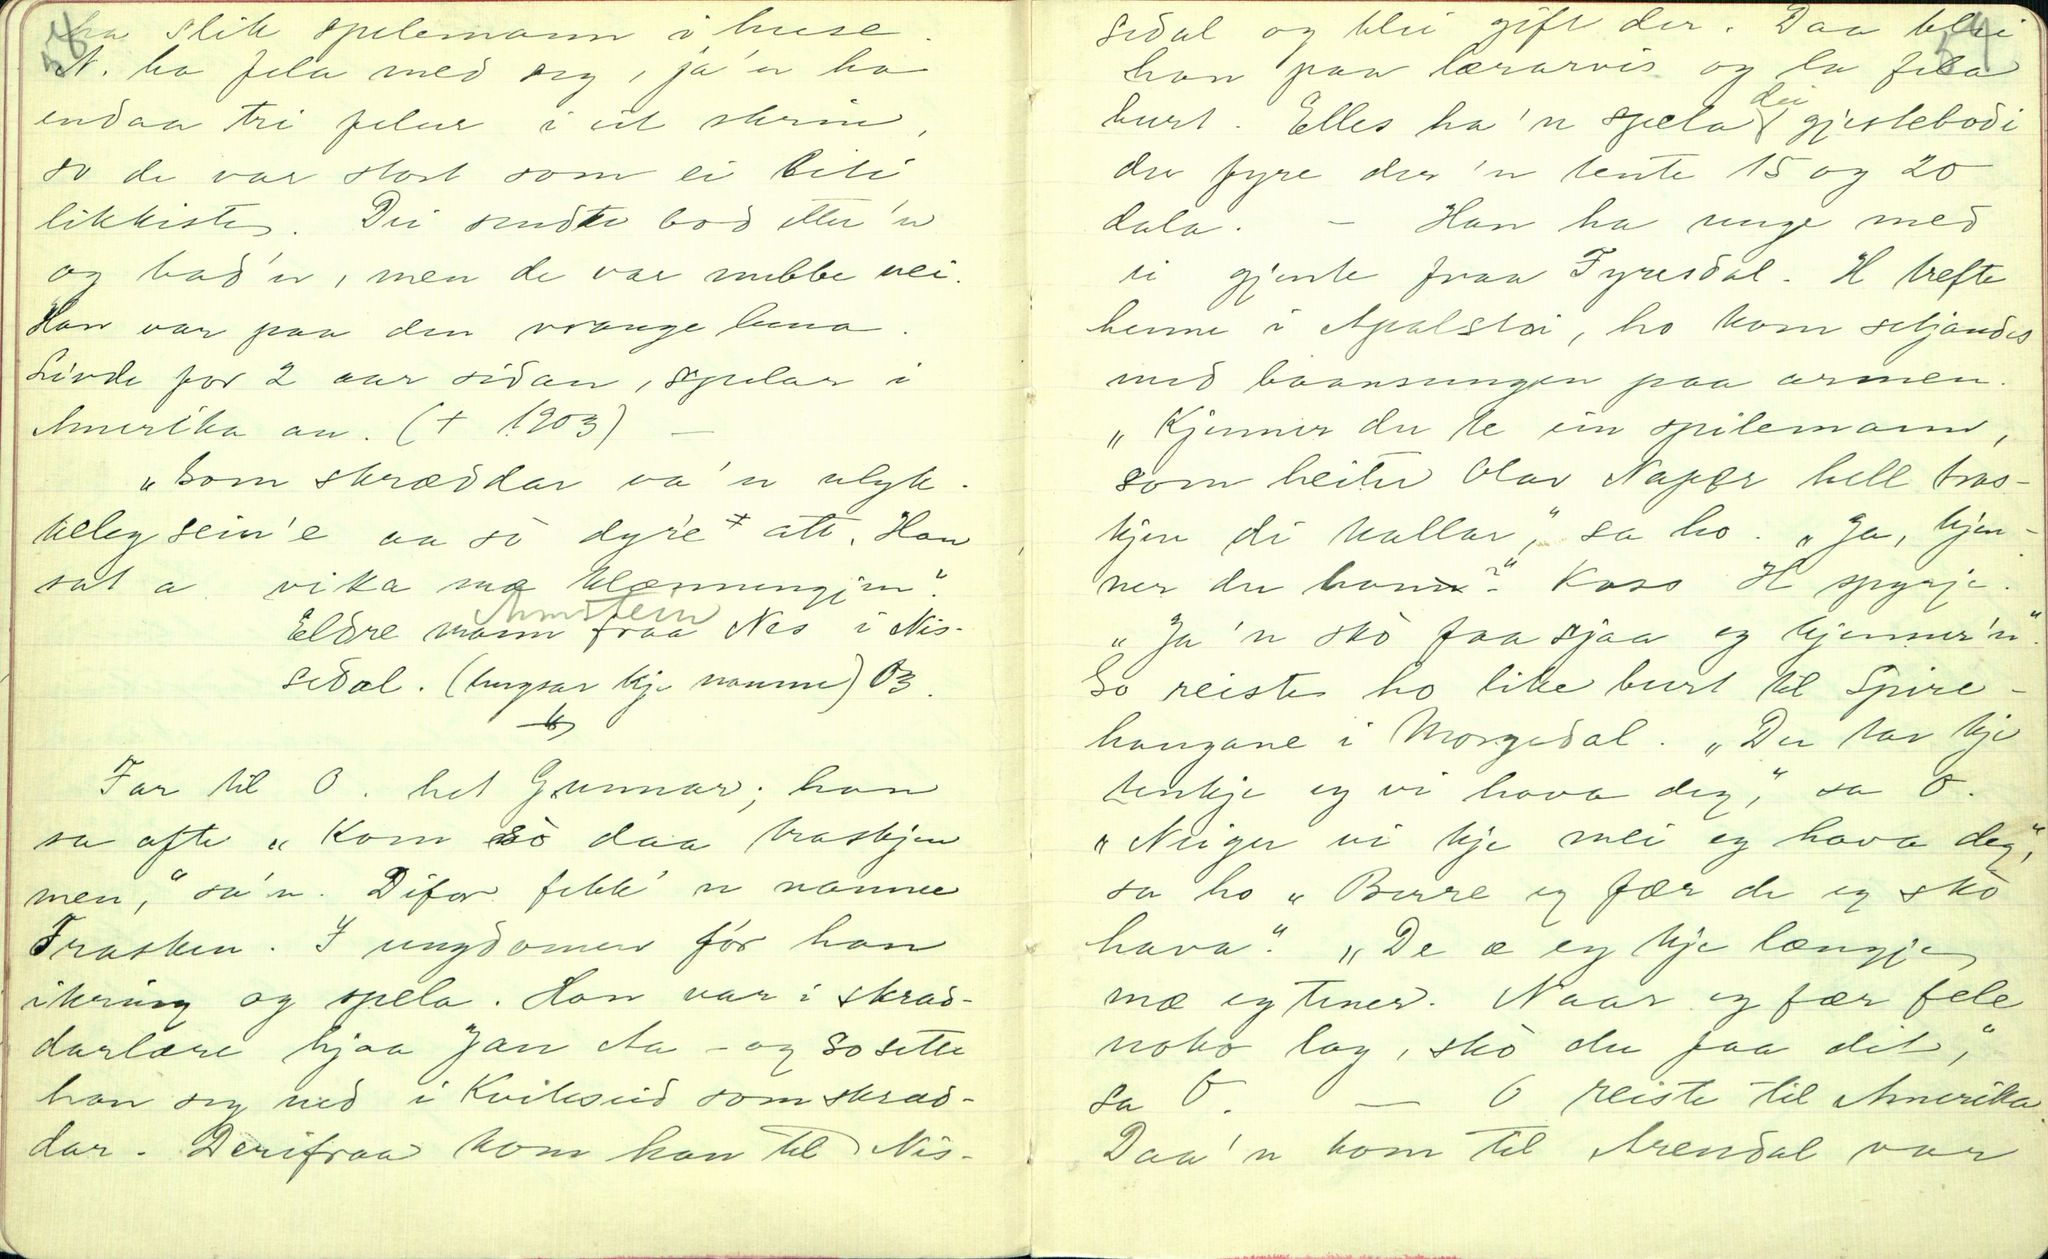 58
ha slik spelemann i huse.
N. ha fela med seg, ja'n ha
endaa tri felur i eit skrin,
so de var stort som ei liti
likkiste. Dei sendte bod etter'n
og bad'n, men de var nubbe nei.
Han var paa den vrange luna.
Livde for 2 aar sidan, spelar i
Amerika au. († 1903) —
„Som skræddar va'n ulyk-
keleg sein'e aa so dyre + att. Han
sat a vika mæ klænningjen".
Amstein
Eldre mann fraa Nes i Nis-
sedal. (hugsar kje namne) 03.
Far til O. het Gunnar; han
sa ofte „Kom so daa traskjen
men," sa'n. Difor fekk'n namnet
Trasken. I ungdomen fór han
ikring og spela. Han var i skræd-
darlære hjaa Jan Aa — og so sette
han seg ned i Kviteseid som skræd-
dar. Derifraa kom han til Nis-
59
sedal og blei gift der. Daa blei
han paa lærarvis og la fela
burt. Elles ha'n spela dei gjestebodi
der fyre der'n tente 15 og 20
dala. — Han ha unge med
ei gjente fraa Fyresdal. H trefte
henne i Apalstøi, ho kom setjandes
med baansungen paa armen.
„Kjenner du te ein spilemann,
som heiter Olav Naper hell tras-
kjen di kallar," sa ho. „Ja, kjen-
ner du han?" Kass H spyrje.
„Ja'n sko faa sjaa eg kjenner'n".
So reiste ho like burt til Spire-
haugane i Morgedal. „Du tar kje
tenkje eg vi hava deg," sa O.
„Neigu vi kje mei eg hava deg",
sa ho „Berre eg fær de eg sko
hava". „De æ eg kje længje
mæ eg tener. Naar eg fær fele
noko lag, sko du faa dit,"
sa O. — O reiste til Amerika.
Daa'n kom til Arendal var